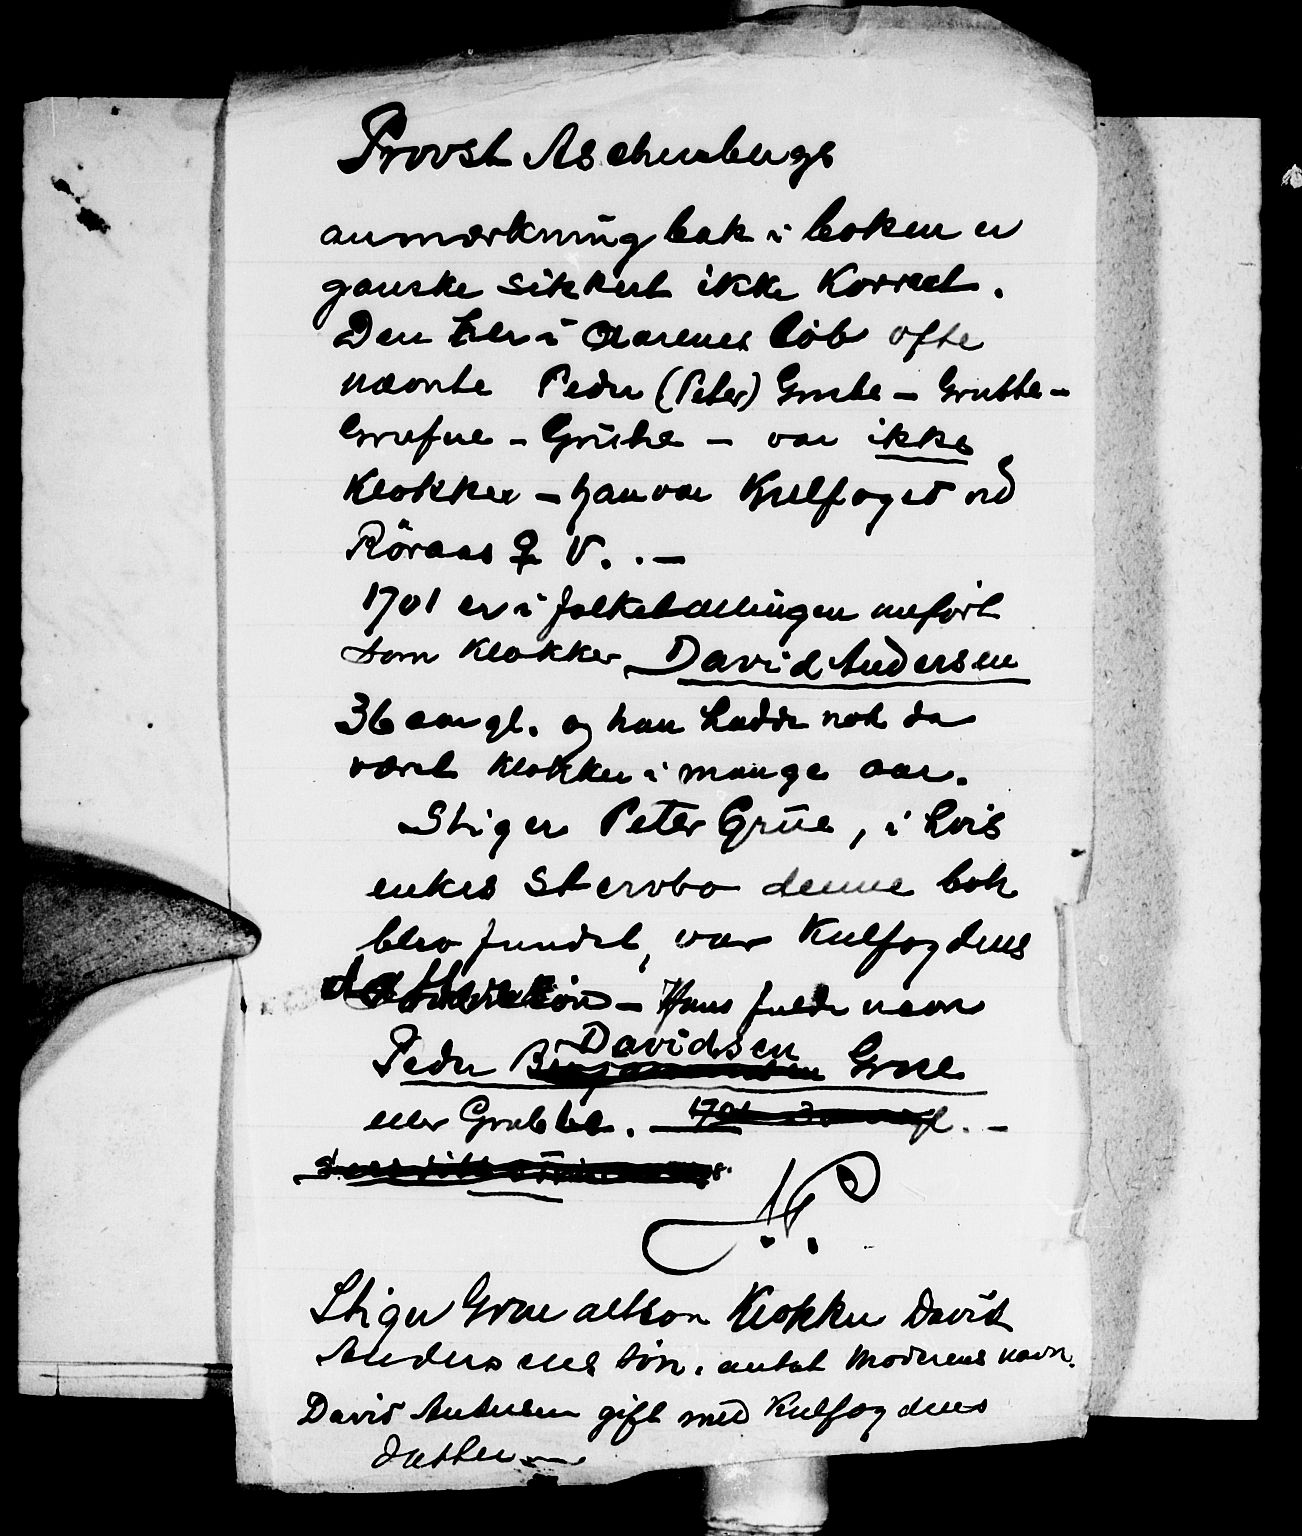 Provst Aschenbergs
anmærkning bak i boken er
ganske sikkert ikke korrect.
Den her i Aarenes löb ofte
nævnte Peder (Peter) Grube - Grubbe -
Grufue - Grühe - var ikke
Klokker - han var Kulfoged ved
Röraas V. . -
1701 er i folketællingen anfört
som klokker David Andersen
36 aar gl. og han hadde nok da
været klokker i mange aar.
Stiger Peter Grüe, i hvis
enkes Stervbo denne bok
blev fundet, var Kulfogdens
dattersön - Hans fulde navn
Peder Davidsen Grue
eller Grubbe. - 1701
Stiger Grue altson Klokker David
Andersens sön. antat Moderens navn.
David Andersen gift med Kulfogdens
datter -